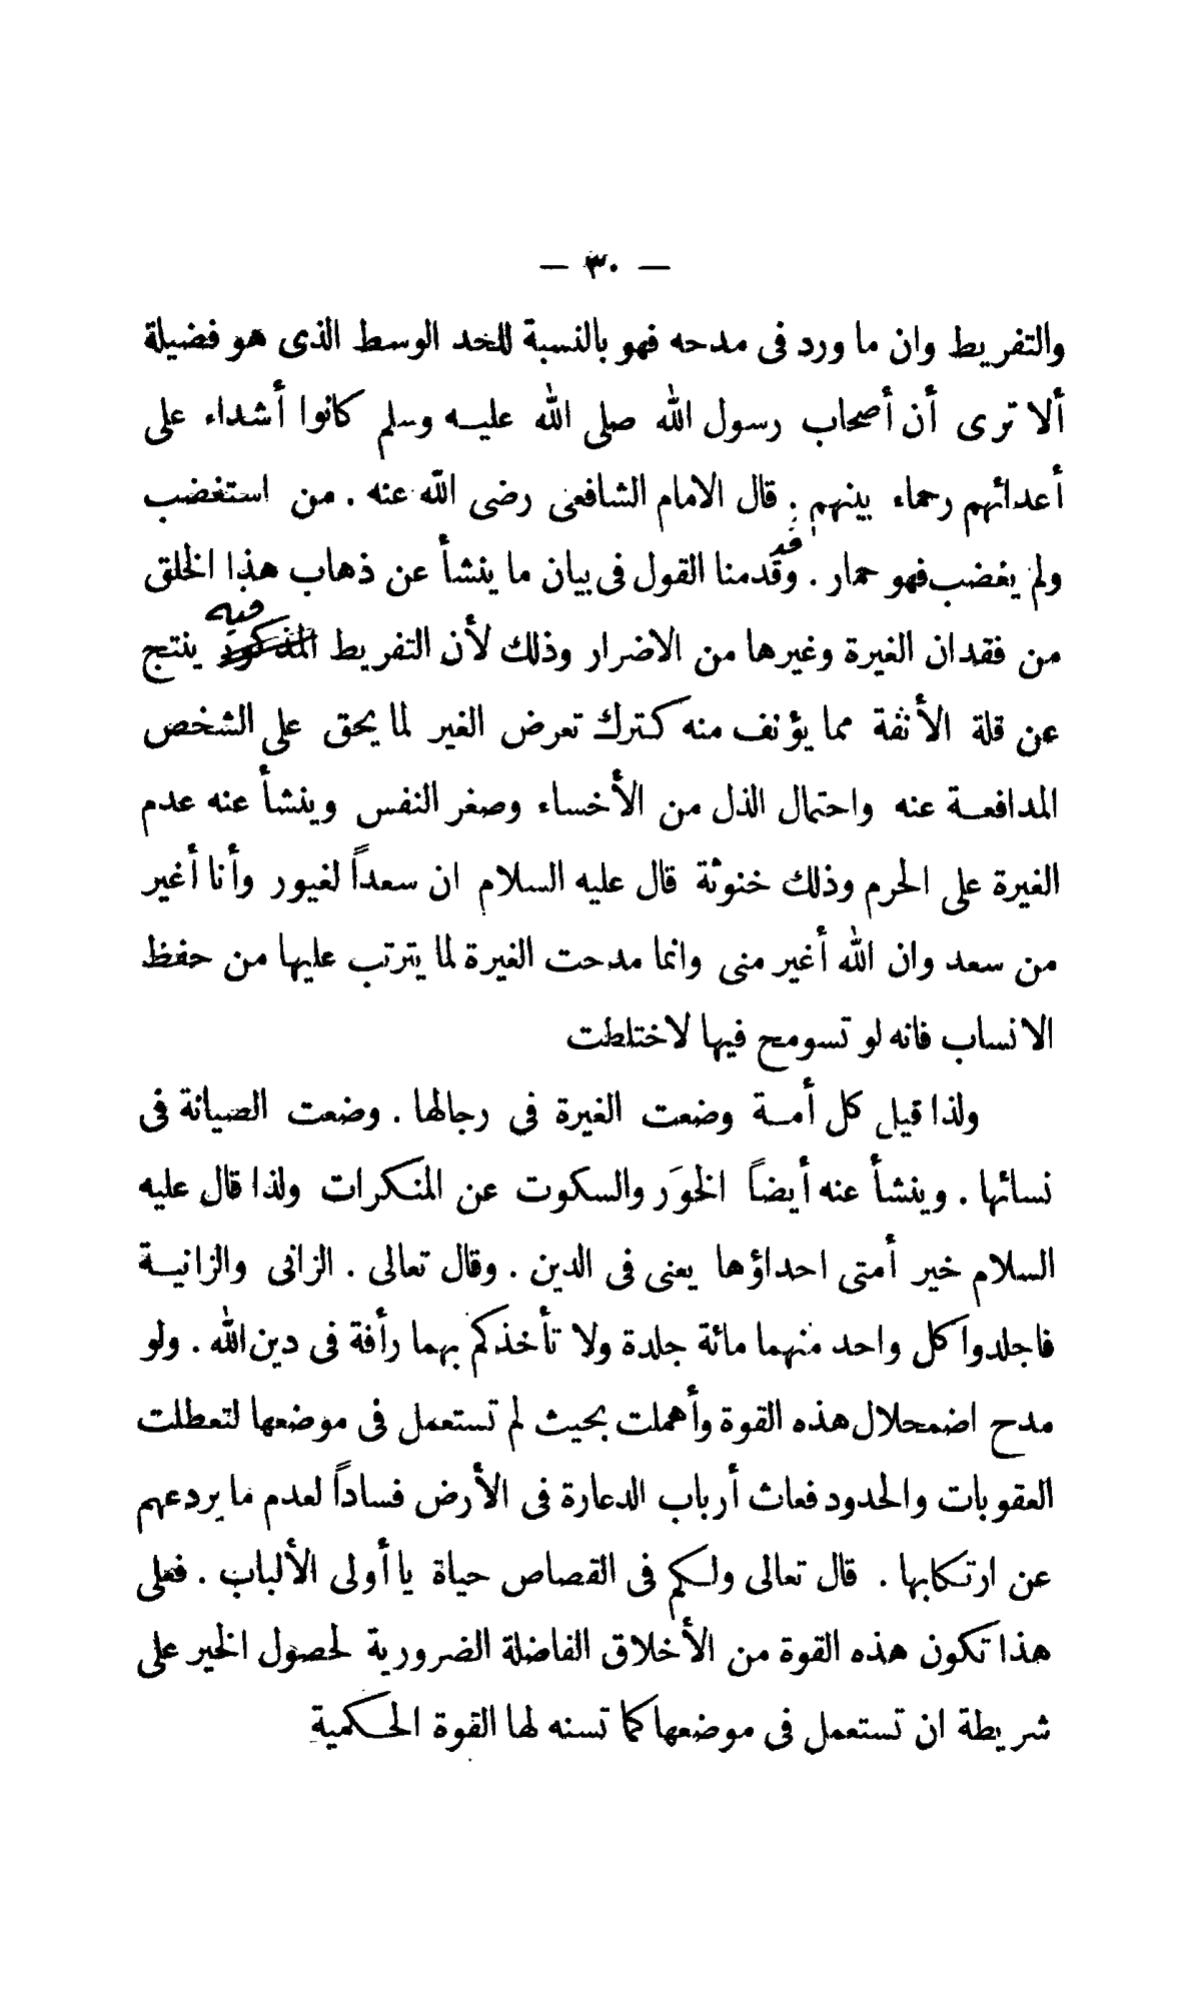 — ٣٠ —
والتفريط وان ما ورد فى مدحه فهو بالنسبة للحد الوسط الذى هو فضيلة
ألا ترى أن أصحاب رسول الله صلى الله عليه وسلم كانوا أشداء على
أعدائهم رحماء بينهم . قال الامام الشافعى رضى الله عنه . من استغضب
ولم يغضب فهو حمار . وقد قدمنا القول فى بيان ما ينشأ عن ذهاب هذا الخلق
من فقدان الغيرة وغيرها من الاضرار وذلك لأن التفريط المذكور فيه ينتج
عن قلة الأنفة مما يؤنف منه كترك تعرض الغير لما يحق على الشخص
المدافعة عنه واحتمال الذل من الأخساء وصغر النفس وينشأ عنه عدم
الغيرة على الحرم وذلك خنوثة قال عليه السلام ان سعداً لغيور وأنا أغير
من سعد وان الله أغير منى وانما مدحت الغيرة لما يترتب عليها من حفظ
الانساب فانه لو تسومح فيها لاختلطت
ولذا قيل كل أمة وضعت الغيرة فى رجالها . وضعت الصيانة فى
نسائها . وينشأ عنه أيضاً الخوَر والسكوت عن المنكرات ولذا قال عليه
السلام خير أمتى احداؤها يعنى فى الدين . وقال تعالى . الزانى والزانية
فاجلدوا كل واحد منهما مائة جلدة ولا تأخذكم بهما رأفة فى دين الله . ولو
مدح اضمحلال هذه القوة وأهملت بحيث لم تستعمل فى موضعها لتعطلت
العقوبات والحدود فعاث أرباب الدعارة فى الأرض فساداً لعدم ما يردعهم
عن ارتكابها . قال تعالى ولكم فى القصاص حياة يا أولى الألباب . فعلى
هذا تكون هذه القوة من الأخلاق الفاضلة الضرورية لحصول الخير على
شريطة ان تستعمل فى موضعها كما تسنه لها القوة الحكمية